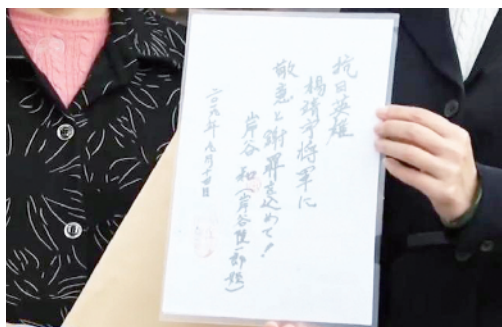 抗日英雄
楊靖宇将軍に
敬意と謝罪を込めて！
岸谷和（岸谷隆一郎姪）
二〇一九年九月十四日